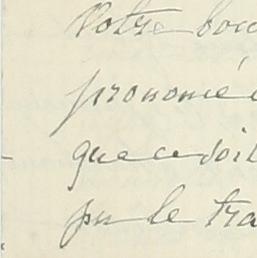 Votre bou
prononcé
que ce soit
pu le tra